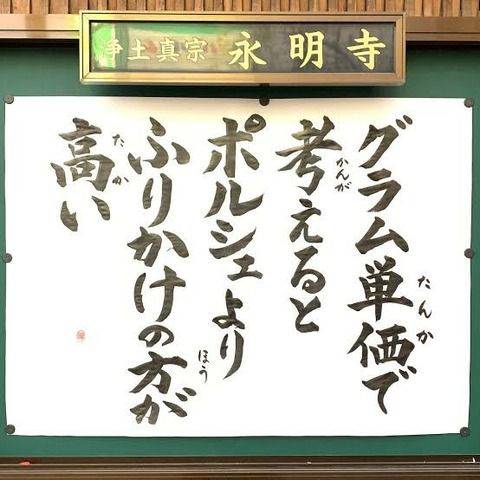 浄土真宗 永明寺
グラム単価で
たんか
考えると
かんが
ポルシェより
ふりかけの方が
ほう
高い
たか